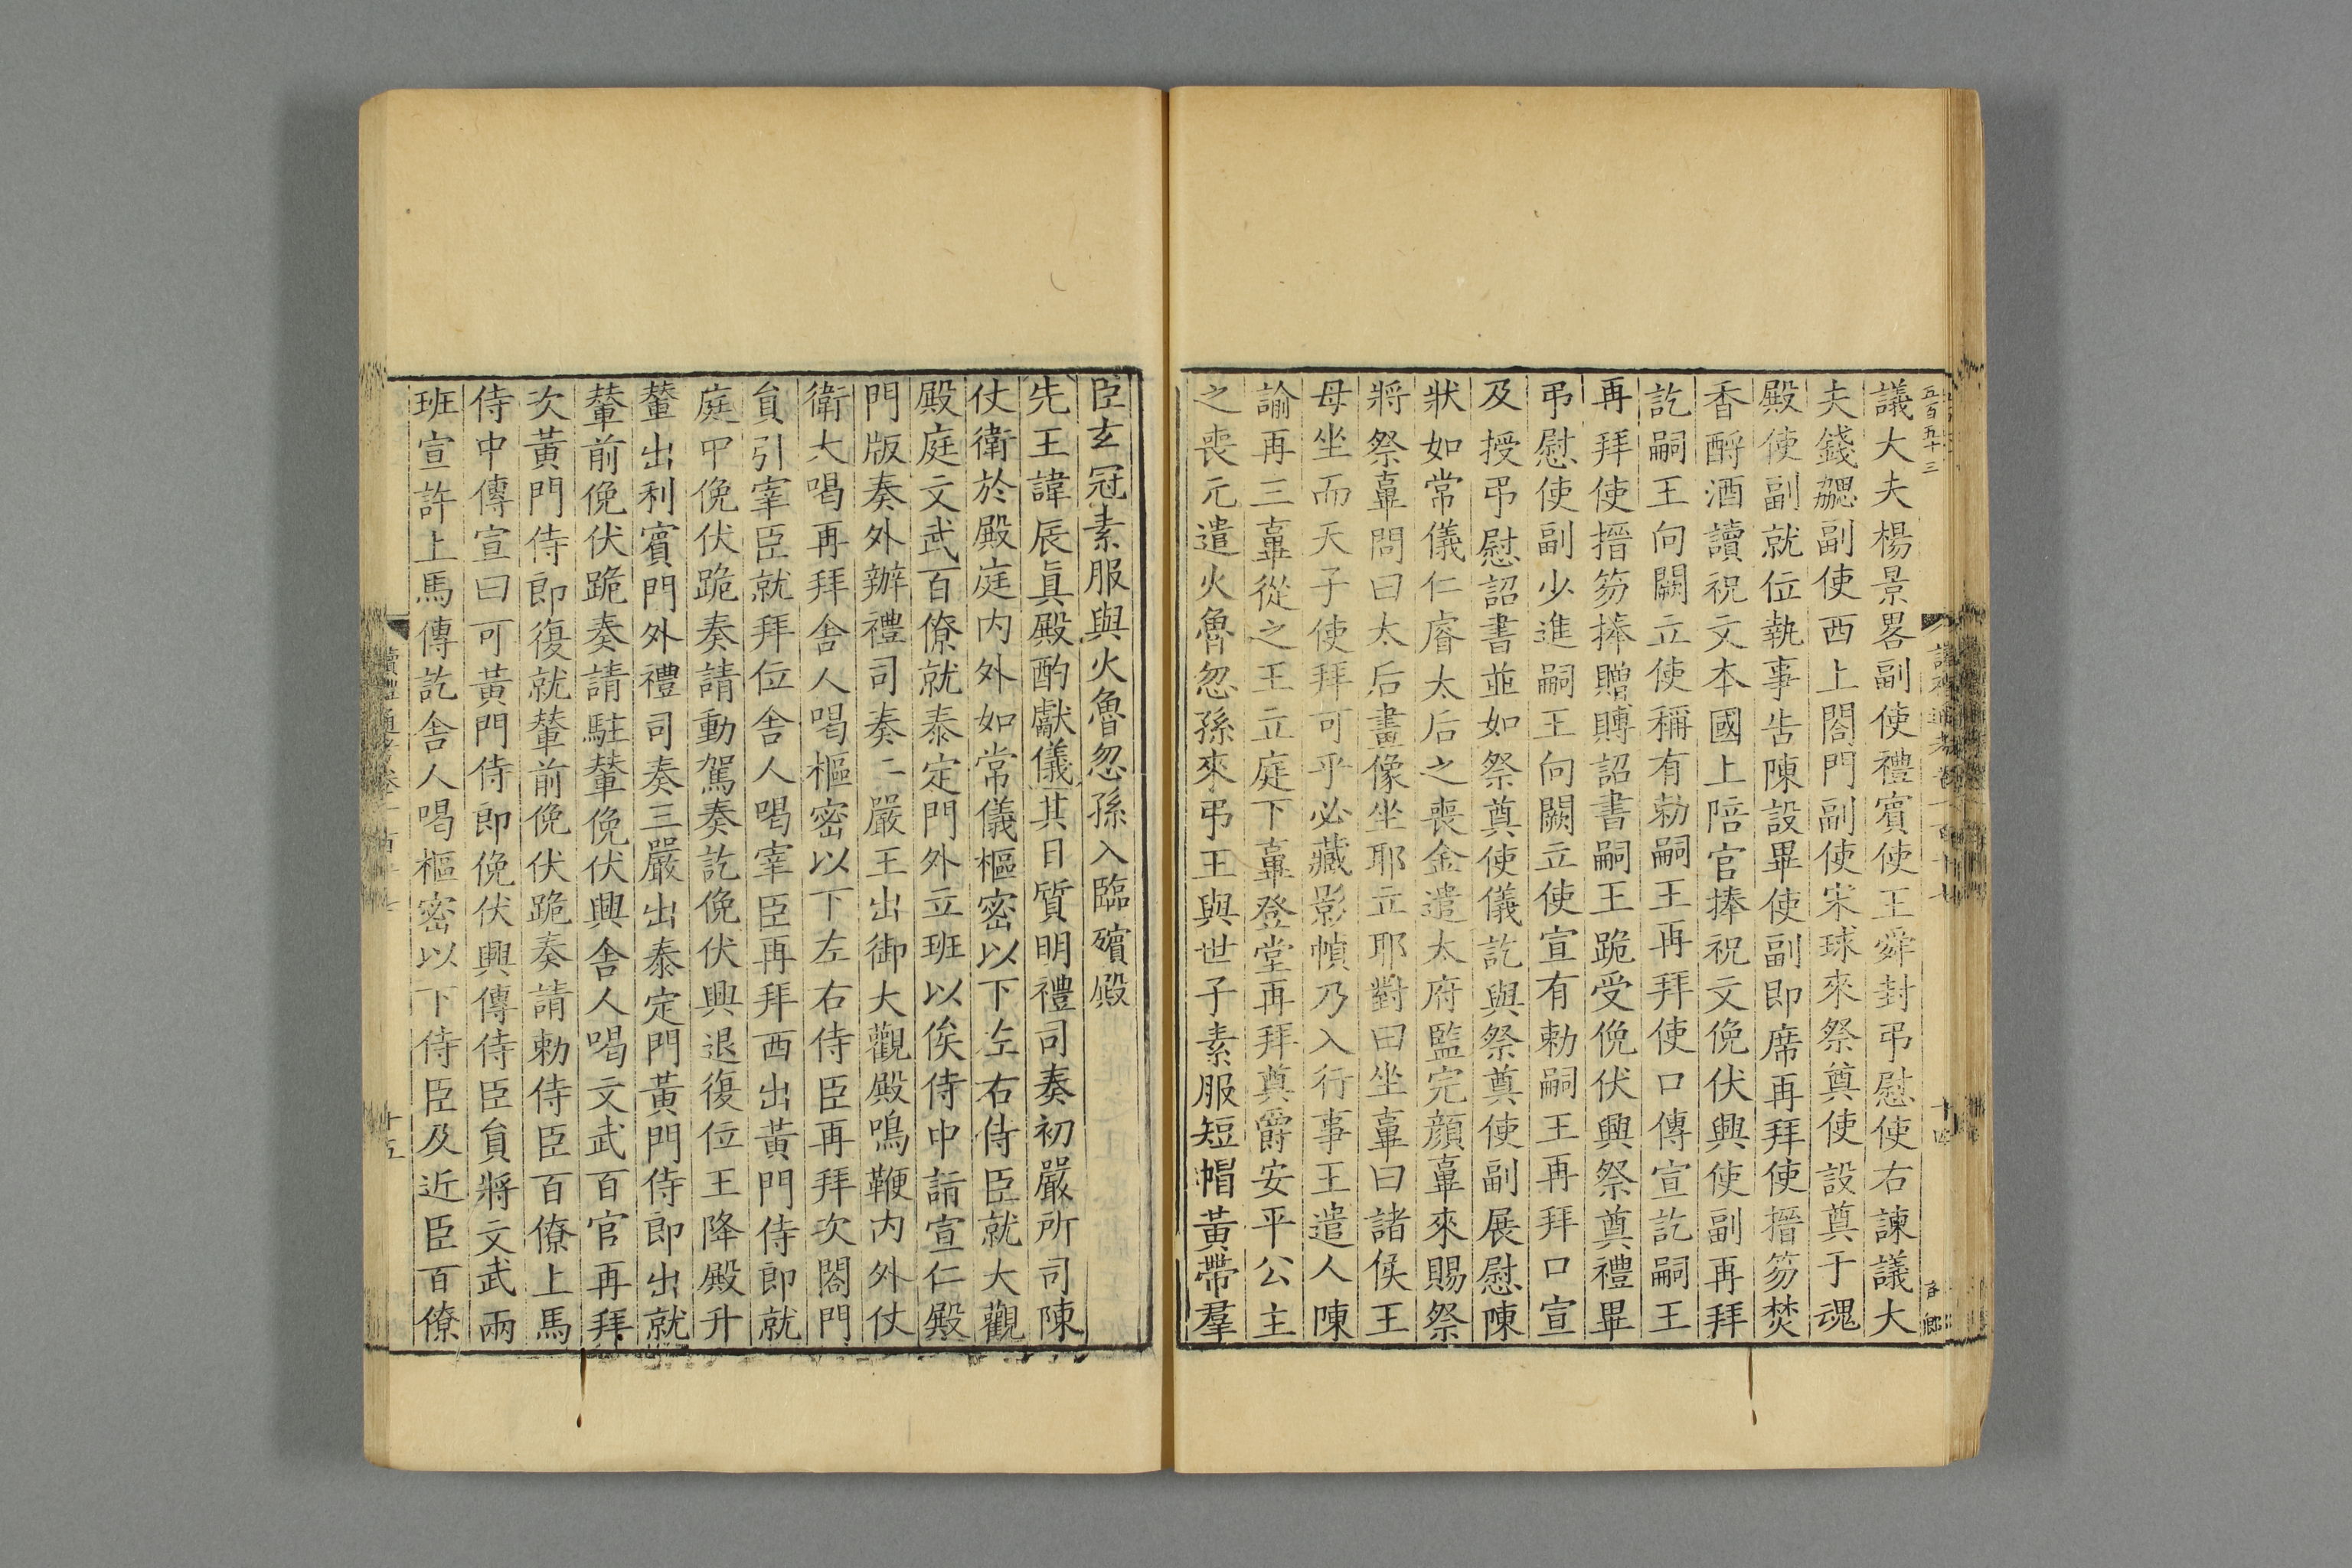 五百五十三
議大夫楊景畧副使禮賓使王舜封弔慰使右諫議大
夫錢勰副使西上閤門副使宋球來祭奠使設奠于魂
殿使副就位執事告陳設畢使副即席再拜使搢笏焚
香酹酒讀祝文本國上陪官捧祝文俛伏興使副再拜
訖嗣王向闕立使稱有勅嗣王再拜使口傳宣訖嗣王
再拜使搢笏捧贈賻詔書嗣王跪受俛伏興祭奠禮畢
弔慰使副少進嗣王向闕立使宣有勅嗣王再拜口宣
及授弔慰詔書並如祭奠使儀訖與祭奠使副展慰陳
狀如常儀仁睿太后之喪金遣太府監完顔㔶來賜祭
將祭㔶問曰太后畫像坐耶立耶對曰坐㔶曰諸侯王
母坐而天子使拜可乎必藏影幀乃入行事王遣人陳
諭再三㔶從之王立庭下㔶登堂再拜奠爵安平公主
之喪元遣火魯忽孫來弔王與世子素服短帽黃帶羣
十四
臣玄冠素服與火魯忽孫入臨殯殿
先王諱辰眞殿酌獻儀其日質明禮司奏初嚴所司陳
仗衛於殿庭内外如常儀樞密以下左右侍臣就大觀
殿庭文武百僚就泰定門外立班以俟侍中請宣仁殿
門版奏外辦禮司奏二嚴王出御大觀殿鳴鞭内外仗
衛大喝再拜舍人喝樞密以下左右侍臣再拜次閤門
員引宰臣就拜位舍人喝宰臣再拜西出黃門侍郎就
庭甲俛伏跪奏請動駕奏訖俛伏興退復位王降殿升
輦出利賓門外禮司奏三嚴出泰定門黃門侍郎出就
輦前俛伏跪奏請駐輦俛伏興舍人喝文武百官再拜
次黃門侍郎復就輦前俛伏跪奏請勅侍臣百僚上馬
侍中傳宣曰可黃門侍郎俛伏興傳侍臣員將文武兩
班宣許上馬傳訖舍人喝樞密以下侍臣及近臣百僚
十五